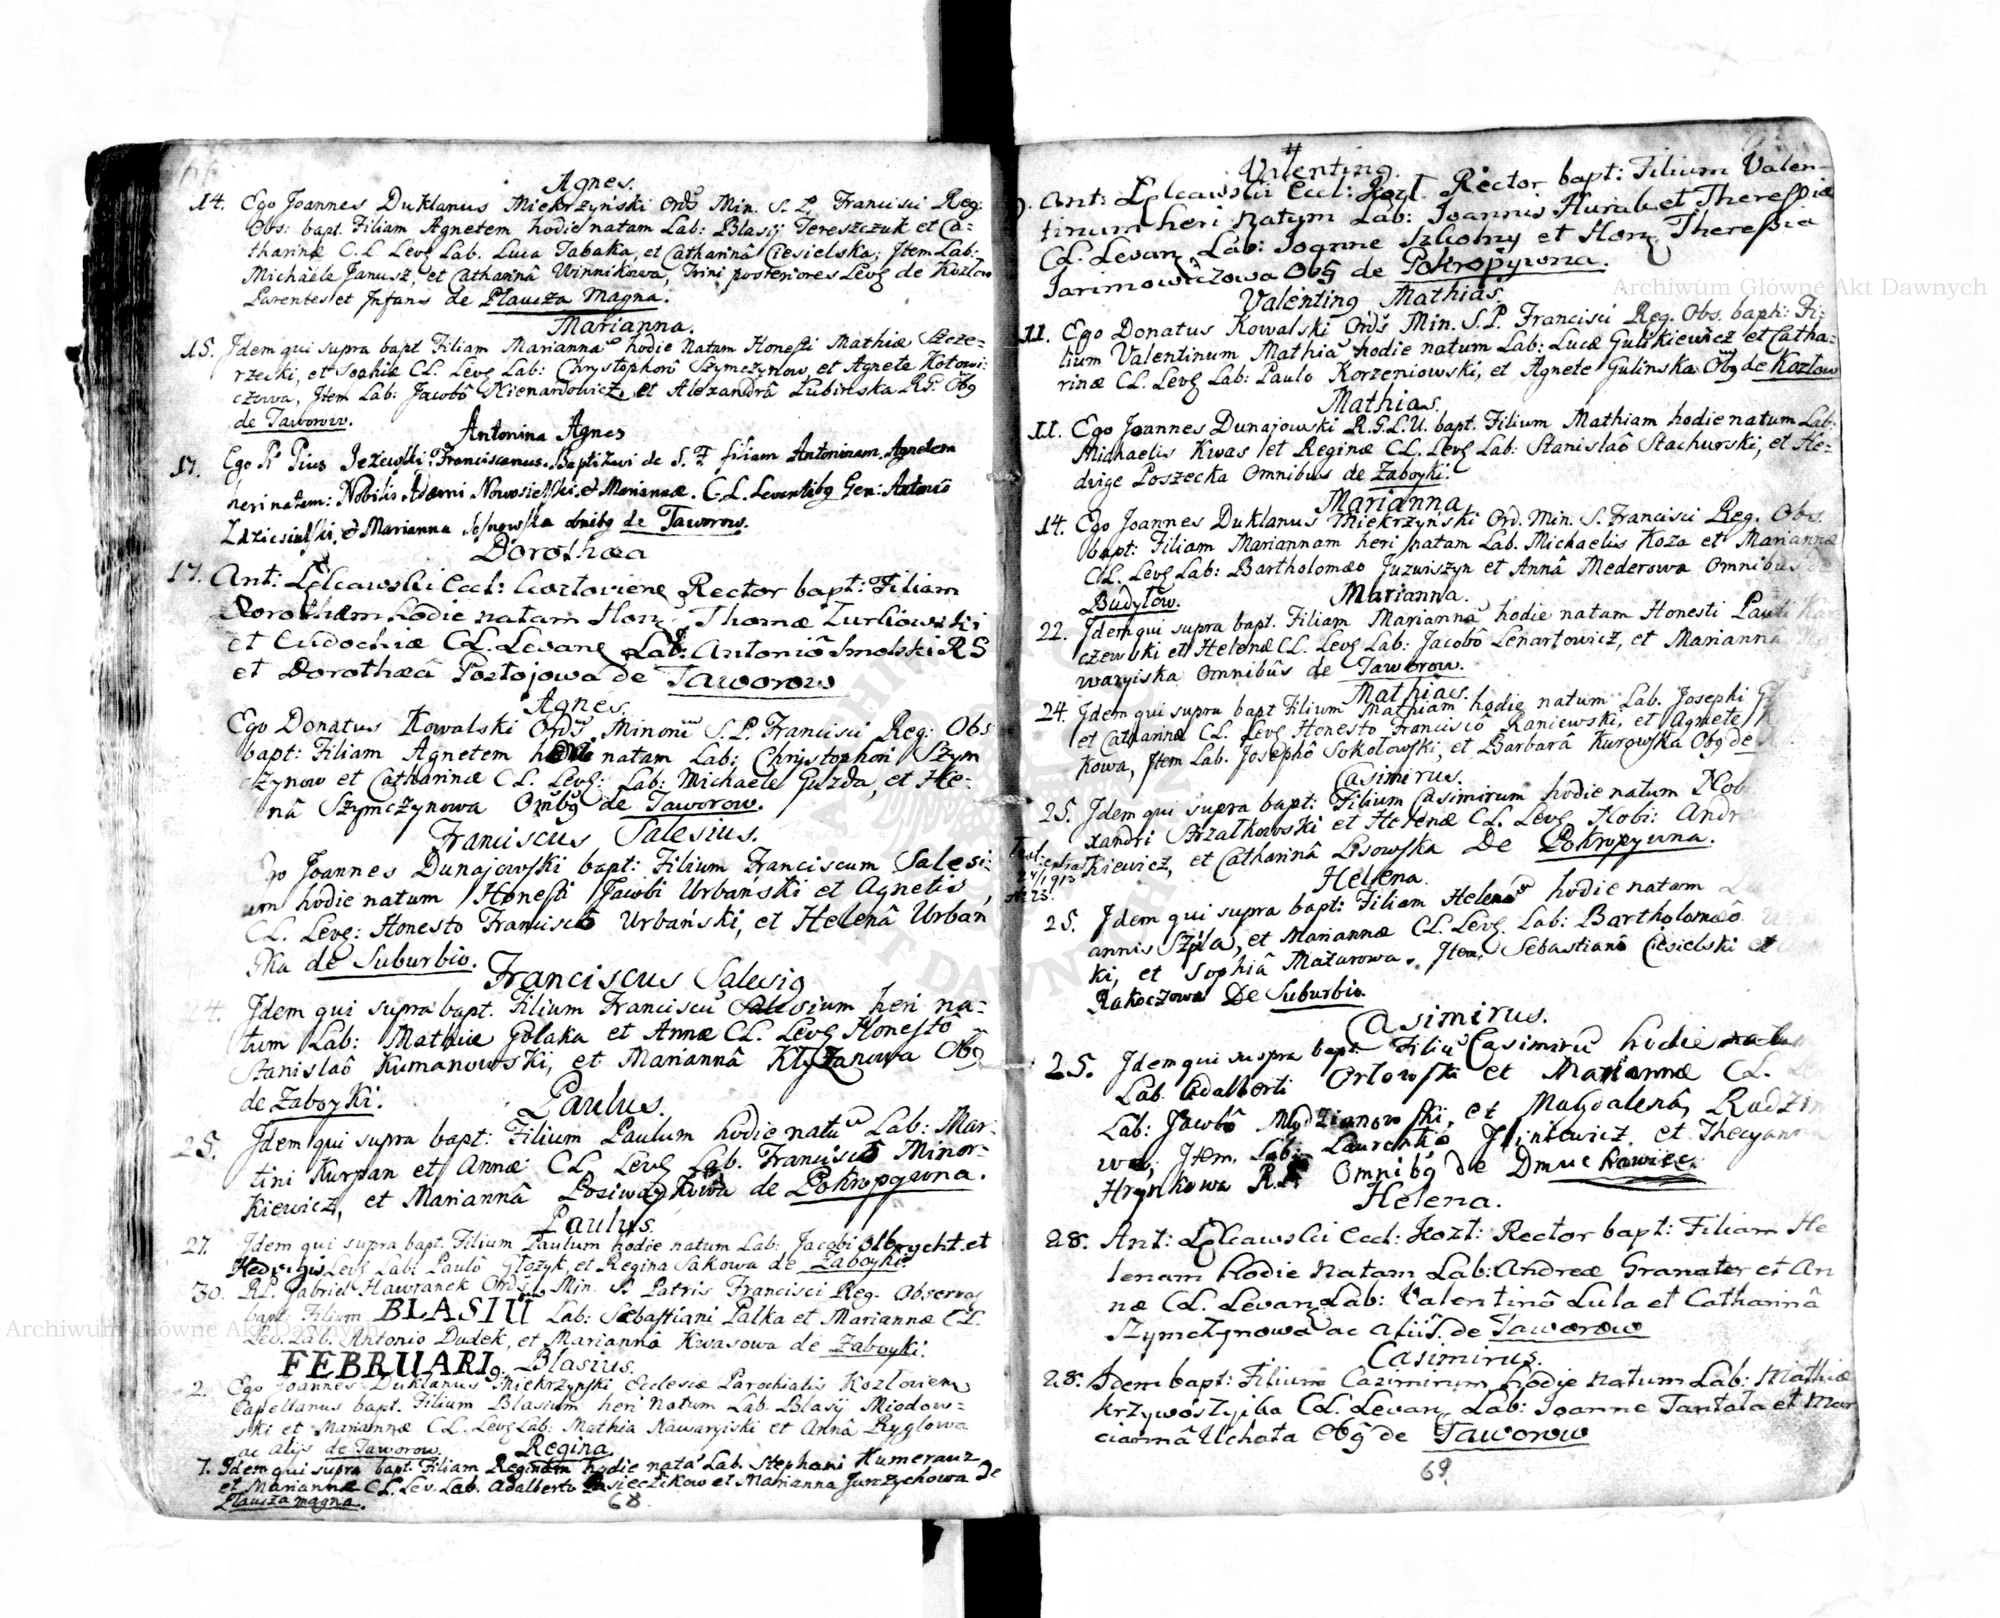 Agnes.
14. Ego Joannes Duklanus Miekrzyński Ord. Min. S. P. Francisci Reg:
Obs: bapt. Filiam Agnetem hodie natam Lab: Blasij Tereszczuk et Ca-
tharinæ C. L. Levg Lab. Luca Tabaka, et Catharinâ Ciesielska; Jtem Lab:
Michaele Janusz, et Catharinâ Winnikowa, Trini posteriores Levg de Kozlow
Parentes et Jnfans de Plaucza Magna.
Marianna.
15. Jdem qui supra bapt Filiam Marianna hodie Natam Honesti Mathiæ Szcze-
rzecki, et Sophiæ CL. Levg Lab: Chrystophorô Szymczynow, et Agnete Kotowi-
czowa, Jtem Lab: Jacobô Nienardowicz, et Alexandrâ Lubinska R.P. Obg
de Taworow.
Antonina Agnes
17. Ego Pr Pius Jezewski Franciscanus Baptizavi de S. F. filiam Antoninam Agnetem
heri natam: Nobilis Adami Nowosielski et Mariannæ. C.L. Levantibg Gen: Antonio
et Marianna omibg de Taworow.
Dorothæa
17. Ant: Lelcawski Eccl: Cozloviens Rector bapt: Filiam
Dorothæam hodie natam Hon: Thomæ Zurkowski
et Eudochiæ CL. Levang Lab: Antoniô Smolski RS
et Dorothæâ Postojowa de Taworow
Agnes.
Ego Donatus Kowalski Ord. Minorũ S.P. Francisci Reg: Obs
bapt: Filiam Agnetem hodie natam Lab: Chrystophori Szym
czynow et Catharinæ CL. Levg: Lab: Michaele Guzda, et He-
nâ Szymczynowa Ombg de Taworow.
Franciscus Salesius.
Joannes Dunajowski bapt: Filium Franciscum Salesi-
um hodie natum Honesti Jacobi Urbański et Agnetis,
CL. Levg: Honesto Franciscô Urbański, et Helenâ Urban
ska de Suburbio.
Franciscus Salesig
4. Jdem qui supra bapt. Filium Franciscũ Salesium heri na-
tum Lab: Mathiæ Polaka et Annæ CL. Levg Honestô
Stanislaô Kumanowski, et Mariannâ Klyzanowa Obg
de Zaboyki.
Paulus.
25. Jdem qui supra bapt: Filium Paulum hodie natũ Lab: Mar-
tini Kurpan et Annæ CL. Levg Lab. Franciscô Minor-
kiewicz, et Mariannâ de Pokropywna.
Paulus.
27. Jdem qui supra bapt. Filium Paulum hodie natum Lab: Jacobi Olbrycht et
Hedvigis Levg Lab: Paulô Glozyk, et Regina Sakowa de Zaboyki
30. R.P. Gabriel Hawranek Ord. Min. S. Patris Francisci Reg. Observ
bapt: Filium BLASIŨ Lab: Sebastiani Palka et Mariannæ CL.
Lev. Lab. Antonio Dudek, et Mariannâ Kwasowa de Zaboyki.
FEBRUARI9. Blasius.
2. Ego Joannes Duklanus Miekrzyński Ecclesiæ Parochialis Kozloviens
Capellanus bapt. Filium Blasium heri Natum Lab. Blasij Miodow-
ski et Mariannæ CL. Levg Lab: Mathia Nawaryiski et Annâ Ryglowa
ac alijs de Taworow.
Regina.
7. Jdem qui supra bapt. Filiam Reginam hodie natã Lab. Stephani Kumeranz
et Mariannæ CL. Lev. Lab. Adalberto Pasieczikow et Marianna Jurzychowa de
Plaucza magna.
68
Valenting.
Ant: Lelcawski Eccl: Kozl. Rector bapt: Filium Valen-
tinum heri natum Lab: Joannis Hurab et Theressiæ
CL. Levan Lab: Joanne Szkolny et Hon Theressia
Jarimowiczowa Obg de Pokropywna.
Valenting Mathias.
11. Ego Donatus Kowalski Ord. Min. S.P. Francisci Reg. Obs. bapt: Fi-
lium Valentinum Mathiã hodie natum Lab: Lucæ Gulikiewicz et Catha-
rinæ CL. Levg Lab: Paulo Korzeniowski, et Agnete Gulinska Obg de Kozlow
Mathias.
11. Ego Joannes Dunajowski R.G.L.U. bapt. Filium Mathiam hodie natum Lab:
Michaelis Kwas et Reginæ CL. Levg Lab: Stanislaô Stachurski, et He-
dvige Poszecka Omnibus de Zaboyki.
Marianna
14. Ego Joannes Duklanus Miekrzyński Ord. Min. S. Francisci Reg. Obs.
bapt: Filiam Mariannam heri natam Lab. Michaelis Koza et Mariannæ
CL. Levg Lab: Bartholomæo Juzwiszyn et Annâ Mederowa Omnibus de
Budylow.
Marianna.
22. Jdem qui supra bapt. Filiam Mariannã hodie natam Honesti Pauli
czewski et Helenæ CL. Levg Lab: Jacobô Lenartowicz, et Marianna
waryiska Omnibus de Taworow.
Mathias.
24. Jdem qui supra bapt Filium Mathiam hodie natum Lab. Josephi
et Catharinæ CL. Levg Honesto Franciscô Raniewski, et Agnete
kowa, Jtem Lab. Josephô Sokolowski, et Barbarâ Kurowska Obg de
Casimirus.
25. Jdem qui supra bapt: Filium Casimirum hodie natum Nob
xandri Strzalkowski et Helenæ CL. Levg Nobi: Andr
kiewicz, et Catharinâ Lisowska De Pokropywna.
Helena.
25. Jdem qui supra bapt: Filiam Helenã hodie natam
annis Szpila, et Mariannæ CL. Levg. Lab: Bartholomæô
ki, et Sophiâ Mazurowa. Jtem, Sebastianô Ciesielski et
Rakoczowa De Suburbio.
Casimirus.
25. Jdem qui supra bapt. Filiũ Casimirũ hodie natum
Lab. Adalberti Orlowski et Mariannæ CL.
Lab: Jacobô Mlydzianowski, et Magdalenâ, Rudzin
wa, Jtem, Lab: Laurentiô Hinkewicz, et Thecyanna
Hrynkowa R.P. Omnibg de Dmuchawiec.
Helena.
28. Ant: Lelcawski Eccl: Kozl: Rector bapt: Filiam He
lenam hodie Natam Lab: Andreæ Granater et An
næ CL. Levan Lab: Valentinô Lula et Catharinâ
Szymczynowa ac alijs de Taworow
Casimirus.
28. Idem bapt: Filium Cazimirum hodie natum Lab: Mathiæ
CL. Levan Lab: Joanne Tantala et Mar
iannâ Uchata Obg de Taworow
69
Archiwum Główne Akt Dawnych
Archiwum Główne Akt Dawnych